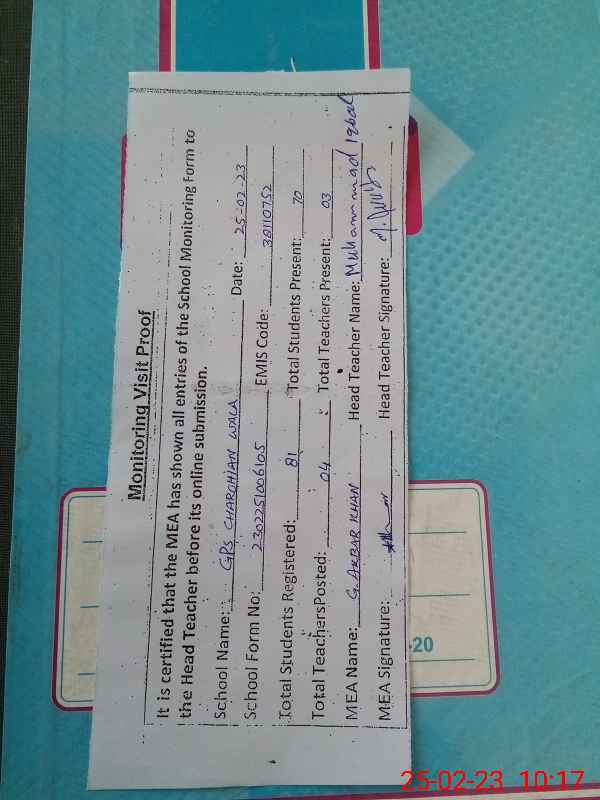 Monitoring Visit Proof
It is certified that the MEA has shown all entries of the School Monitoring Form to
the Head Teacher before its online submission.
School Name: GPS CHAROHIAN WALA Date: 25-02-23
School Form No: 2302251006105 EMIS Code: 38110752
Total Students Registered: 81 Total Students Present: 70
Total TeachersPosted: 04 Total Teachers Present: 03
MEA Name: G. AKBAR KHAN Head Teacher Name: Muhammad Iqbal
MEA Signature: Head Teacher Signature:
-20
25-02-23 10:17